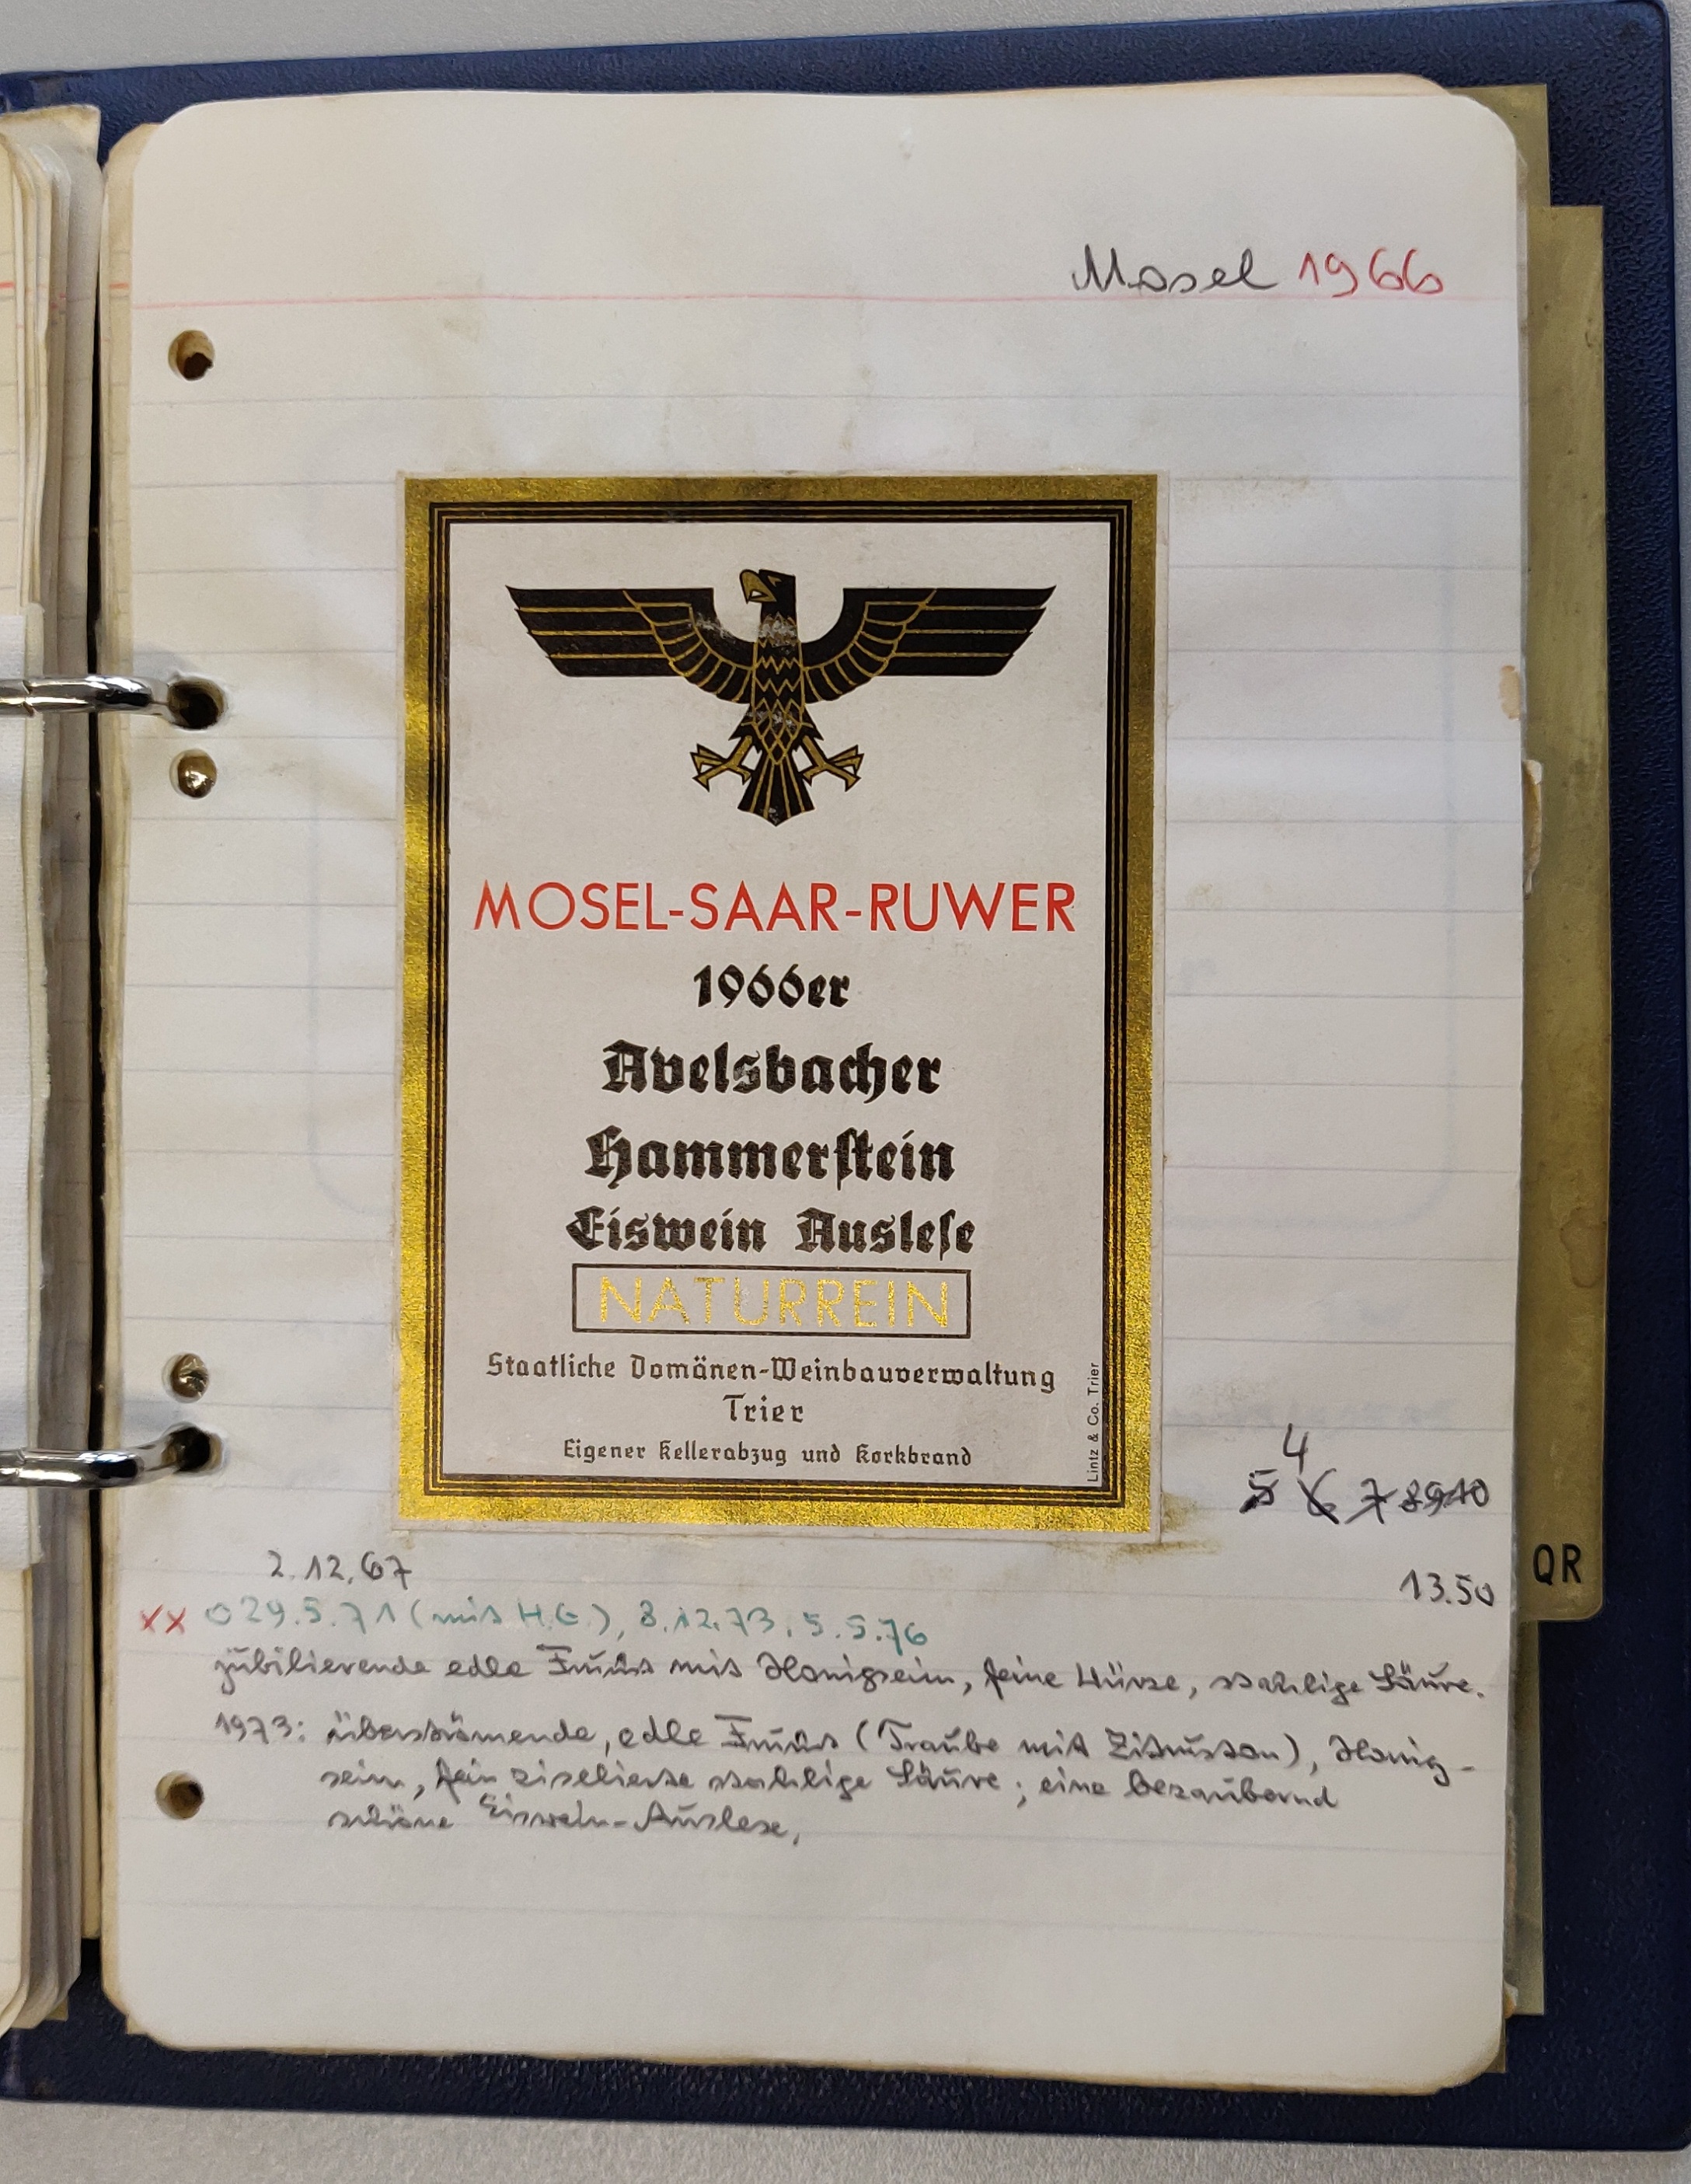 Mosel 1966
MOSEL-SAAR-RUWER
1966er
Avelsbacher
Hammerstein
Eiswein Auslese
NATURREIN
Staatliche Domänen-Weinbauverwaltung
Trier
Eigener Kellerabzug und Korkbrand
Lintz & Co. Trier
4
5 6 7 8 9 10
13.50
2.12.67
xx o 29.5.71 (mit H.G.), 8.12.73, 5.5.76
jubilierende edle Frucht mit Honigseim, feine Würze, stahlige Säure.
1973: überströmende, edle Frucht (Traube mit Zitruston), Honig-
seim, fein ziselierte stahlige Säure; eine bezaubernd
schöne Eiswein-Auslese,
QR